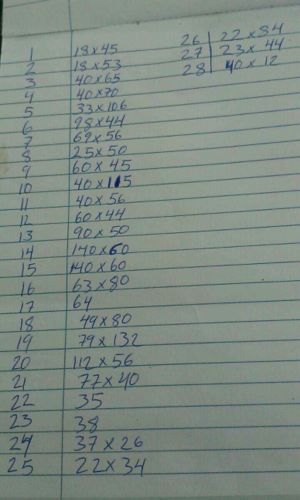 1 18 x 45
2 18 x 53
3 40 x 65
4 40 x 70
5 33 x 106
6 28 x 44
7 69 x 56
8 25 x 50
9 60 x 45
10 40 x 115
11 40 x 56
12 60 x 44
13 90 x 50
14 140 x 60
15 140 x 60
16 63 x 80
17 64
18 49 x 80
19 79 x 132
20 112 x 56
21 77 x 40
22 35
23 38
24 37 x 26
25 22 x 34
26 22 x 84
27 23 x 44
28 40 x 12